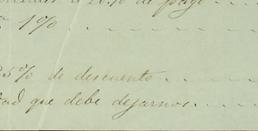 20% de pago
1%
5% de descuento
que debe dejarnos